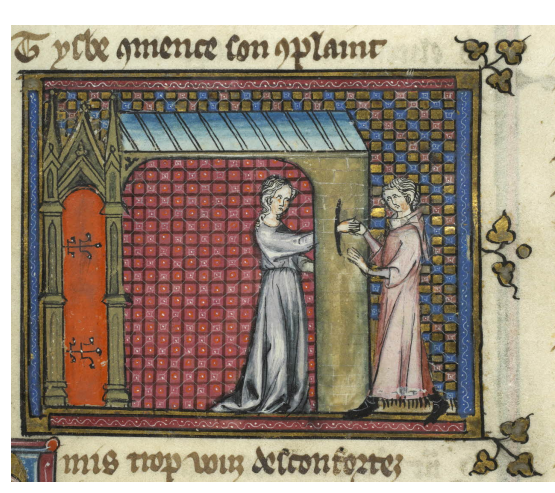 Tysbe ꝯmence son ꝯplaint
mis trop voiz desconfortez